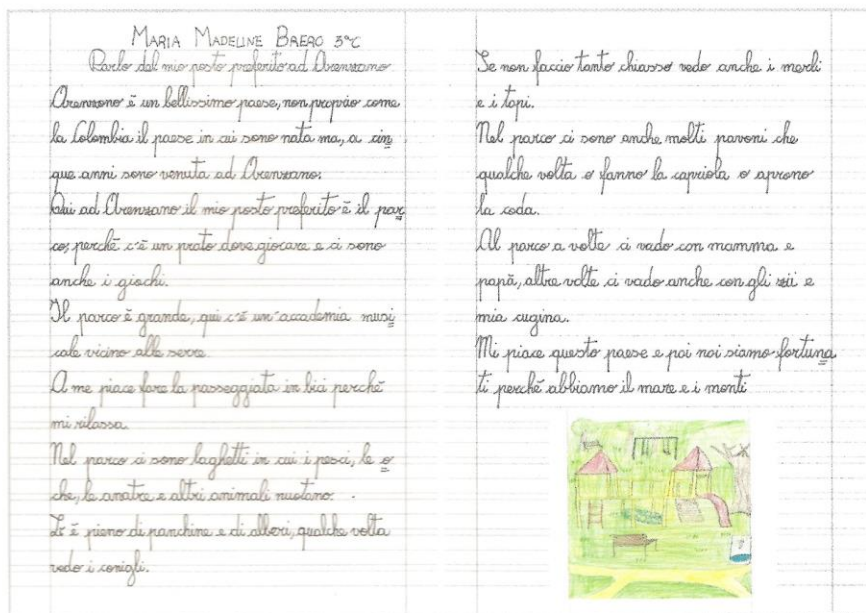 MARIA MADELINE BRERO 3°C
Parlo del mio posto preferito ad Arenzano
Arenzano è un bellissimo paese, non proprio come
la Colombia il paese in cui sono nata ma, a cin
que anni sono venuta ad Arenzano.
Qui ad Arenzano il mio posto preferito è il par
co, perché c'è un prato dove giocare e ci sono
anche i giochi.
Il parco è grande, qui c'è un'accademia musi
cale vicino alle serre.
A me piace fare la passeggiata in bici perché
mi rilassa.
Nel parco ci sono laghetti in cui i pesci, le o
che, le anatre e altri animali nuotano.
Lì è pieno di panchine e di alberi, qualche volta
vedo i conigli.
Se non faccio tanto chiasso vedo anche i merli
e i topi.
Nel parco ci sono anche molti pavoni che
qualche volta o fanno la capriola o aprono
la coda.
Al parco a volte ci vado con mamma e
papà, altre volte ci vado anche con gli zii e
mia cugina.
Mi piace questo paese e poi noi siamo fortuna
ti perché abbiamo il mare e i monti